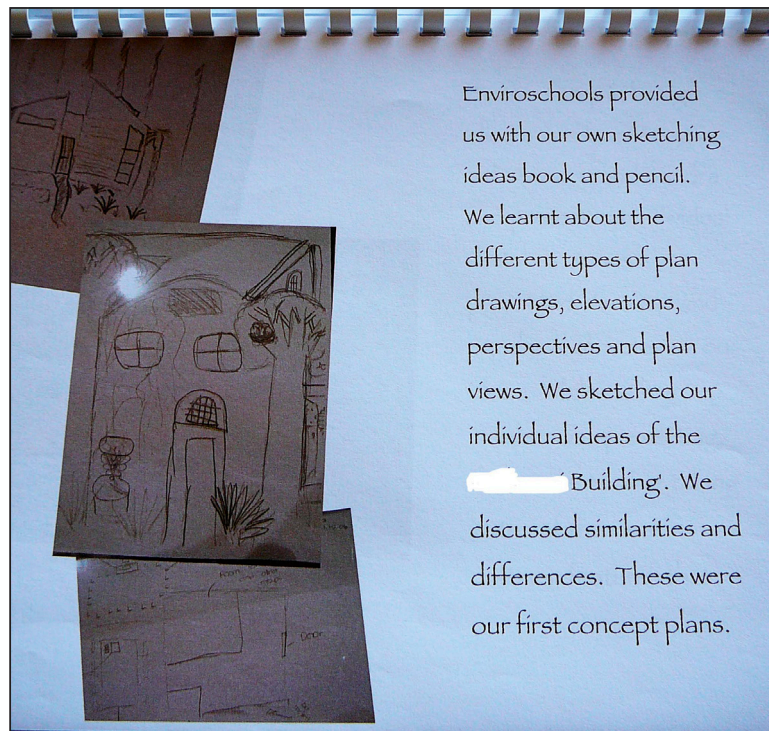 Enviroschools provided
us with our own sketching
ideas book and pencil.
We learnt about the
different types of plan
drawings, elevations,
perspectives and plan
views. We sketched our
individual ideas of the
Building'. We
discussed similarities and
differences. These were
our first concept plans.